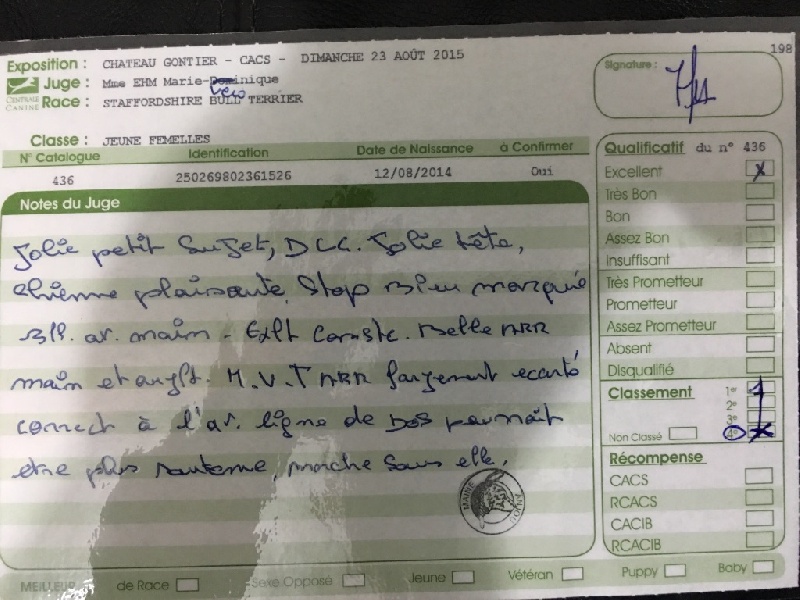 198
Exposition : CHATEAU GONTIER - CACS - DIMANCHE 23 AOÛT 2015
Juge : Mme EHM Marie-Dominique
Race : STAFFORDSHIRE BULL TERRIER
CENTRALE CANINE
Signature :
Classe : JEUNE FEMELLES
N° Catalogue Identification Date de Naissance à Confirmer
436 250269802361526 12/08/2014 Oui
Notes du Juge
Jolie petit Sujet, DCC. Jolie tête,
chienne plaisante, Stop Bien marqué
av. main - Exlt Belle ARR
main et M.V.T ARR largement ecarté
correct à l'av. ligne de Dos pourrait
etre plus soutenue, marche Sans elle.
MAIRIE
Qualificatif du n° 436
Excellent X
Très Bon
Bon
Assez Bon
Insuffisant
Très Prometteur
Prometteur
Assez Prometteur
Absent
Disqualifié
Classement 1° 1
2°
3°
Non Classé 4° X
Récompense
CACS
RCACS
CACIB
RCACIB
MEILLEUR de Race Sexe Opposé Jeune Vétéran Puppy Baby